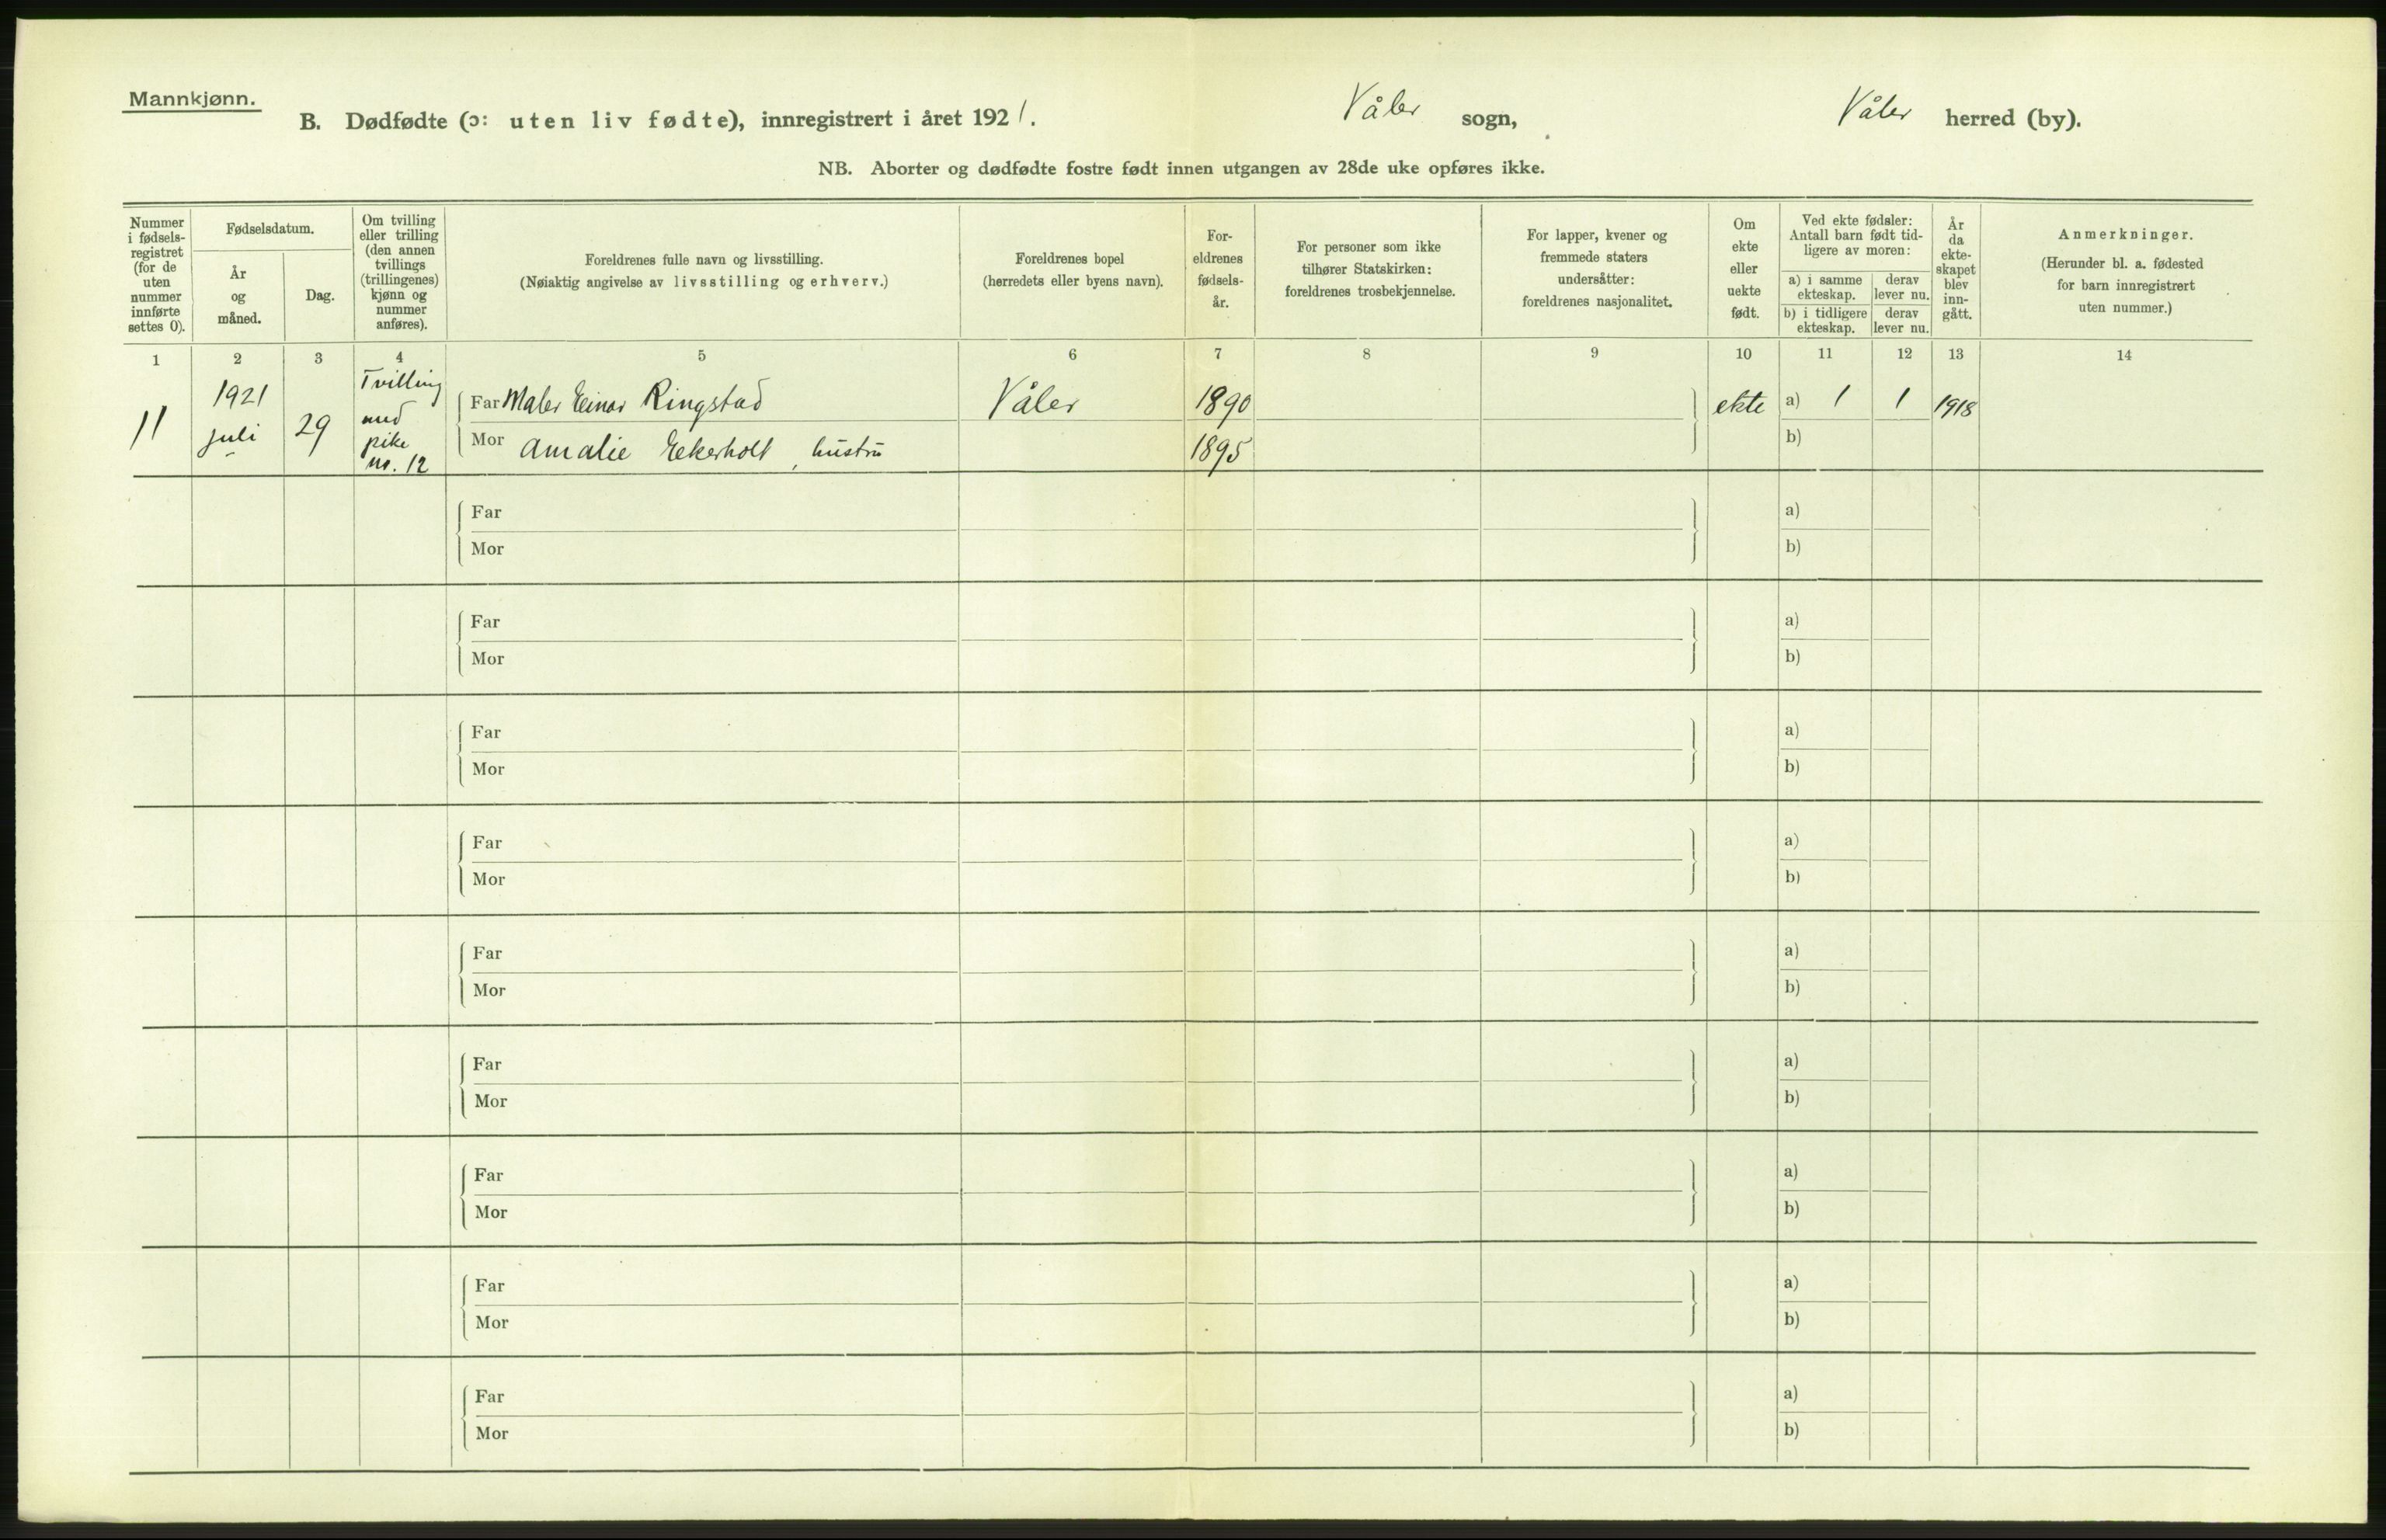 Mannkjønn.
B. Dødfødte (ɔ: uten liv fødte), innregistrert i året 1921. Våler sogn, Våler herred (by).
NB. Aborter og dødfødte fostre født innen utgangen av 28de uke opføres ikke.
Nummer
i fødsels-
registret
(for de
uten
nummer
innførte
settes 0).
Fødselsdatum.
År
og
måned.
Dag.
Om tvilling
eller trilling
(den annen
tvillings
(trillingenes)
kjønn og
nummer
anføres).
Foreldrenes fulle navn og livsstilling.
(Nøiaktig angivelse av livsstilling og erhverv.)
Foreldrenes bopel
(herredets eller byens navn).
For-
eldrenes
fødsels-
år.
For personer som ikke
tilhører Statskirken:
foreldrenes trosbekjennelse.
For lapper, kvener og
fremmede staters
undersåtter:
foreldrenes nasjonalitet.
Om
ekte
eller
uekte
født.
Ved ekte fødsler:
Antall barn født tid-
ligere av moren:
a) i samme
ekteskap.
derav
lever nu.
b) i tidligere
ekteskap.
derav
lever nu.
År
da
ekte-
skapet
blev
inn-
gått.
Anmerkninger.
(Herunder bl. a. fødested
for barn innregistrert
uten nummer.)
1 2 3 4 5 6 7 8 9 10 11 12 13 14
11
1921
juli
29
Tvilling
med
pike
no. 12
Far Maler Einar Ringstad
Mor Amalie Ekerholt, hustru
Våler
1890
1895
ekte
a) 1 1 1918
b)
Far a)
Mor b)
Far a)
Mor b)
Far a)
Mor b)
Far a)
Mor b)
Far a)
Mor b)
Far a)
Mor b)
Far a)
Mor b)
Far a)
Mor b)
Far a)
Mor b)